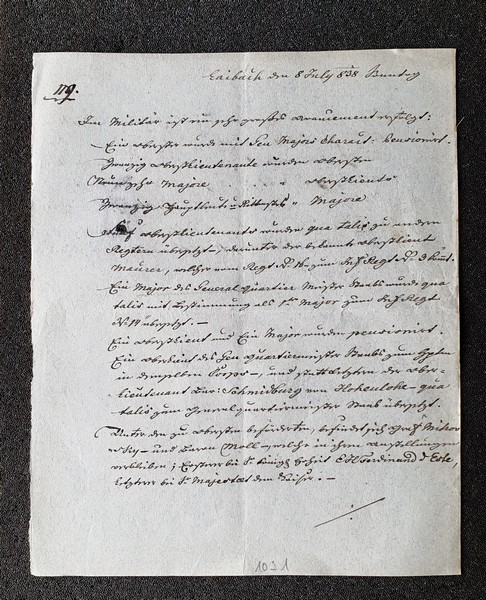 119.
Laibach den 8 July 838
Im Militär ist ein sehr großes Avancement erfolgt:
Ein Oberster wurde mit Gen Majors Charact: Pensionirt.
Zwanzig Oberstlieutenante wurden Obersten
Majore . . . . Oberstlieuts
Zwanzig Hauptleute u Rittmstrs " Majore
Oberstlieutenants wurden qua talis zu andern
Regtern übersetzt, darunter der bekannte Oberstlieut
Maurer, welcher vom Regt No 16 zum Regt No
Ein Major des General Quartier Meister Staabs wurde qua
talis mit Bestimmung als 1ter Major zum Regt
No 14 übersetzt. —
Ein Oberstlieut und Ein Major wurden pensionirt.
Ein Oberlieut des Gen Quartiermeister Staabs zum Hptm
in demselben Corps —, und statt letztern der Ober-
lieutenant Bar: Schmidburg von Hohenlohe — qua
talis zum Generalquartiermeister Staab übersetzt.
Unter den zu Obersten beförderten, befindet sich Graf
und Baron Moll — welche in ihren Anstellungen
verbleiben; Ersterer bei Sr Königl Hoheit EH Ferdinand d Este,
letzterer bei Sr Majestaet dem Kaiser. —
1031